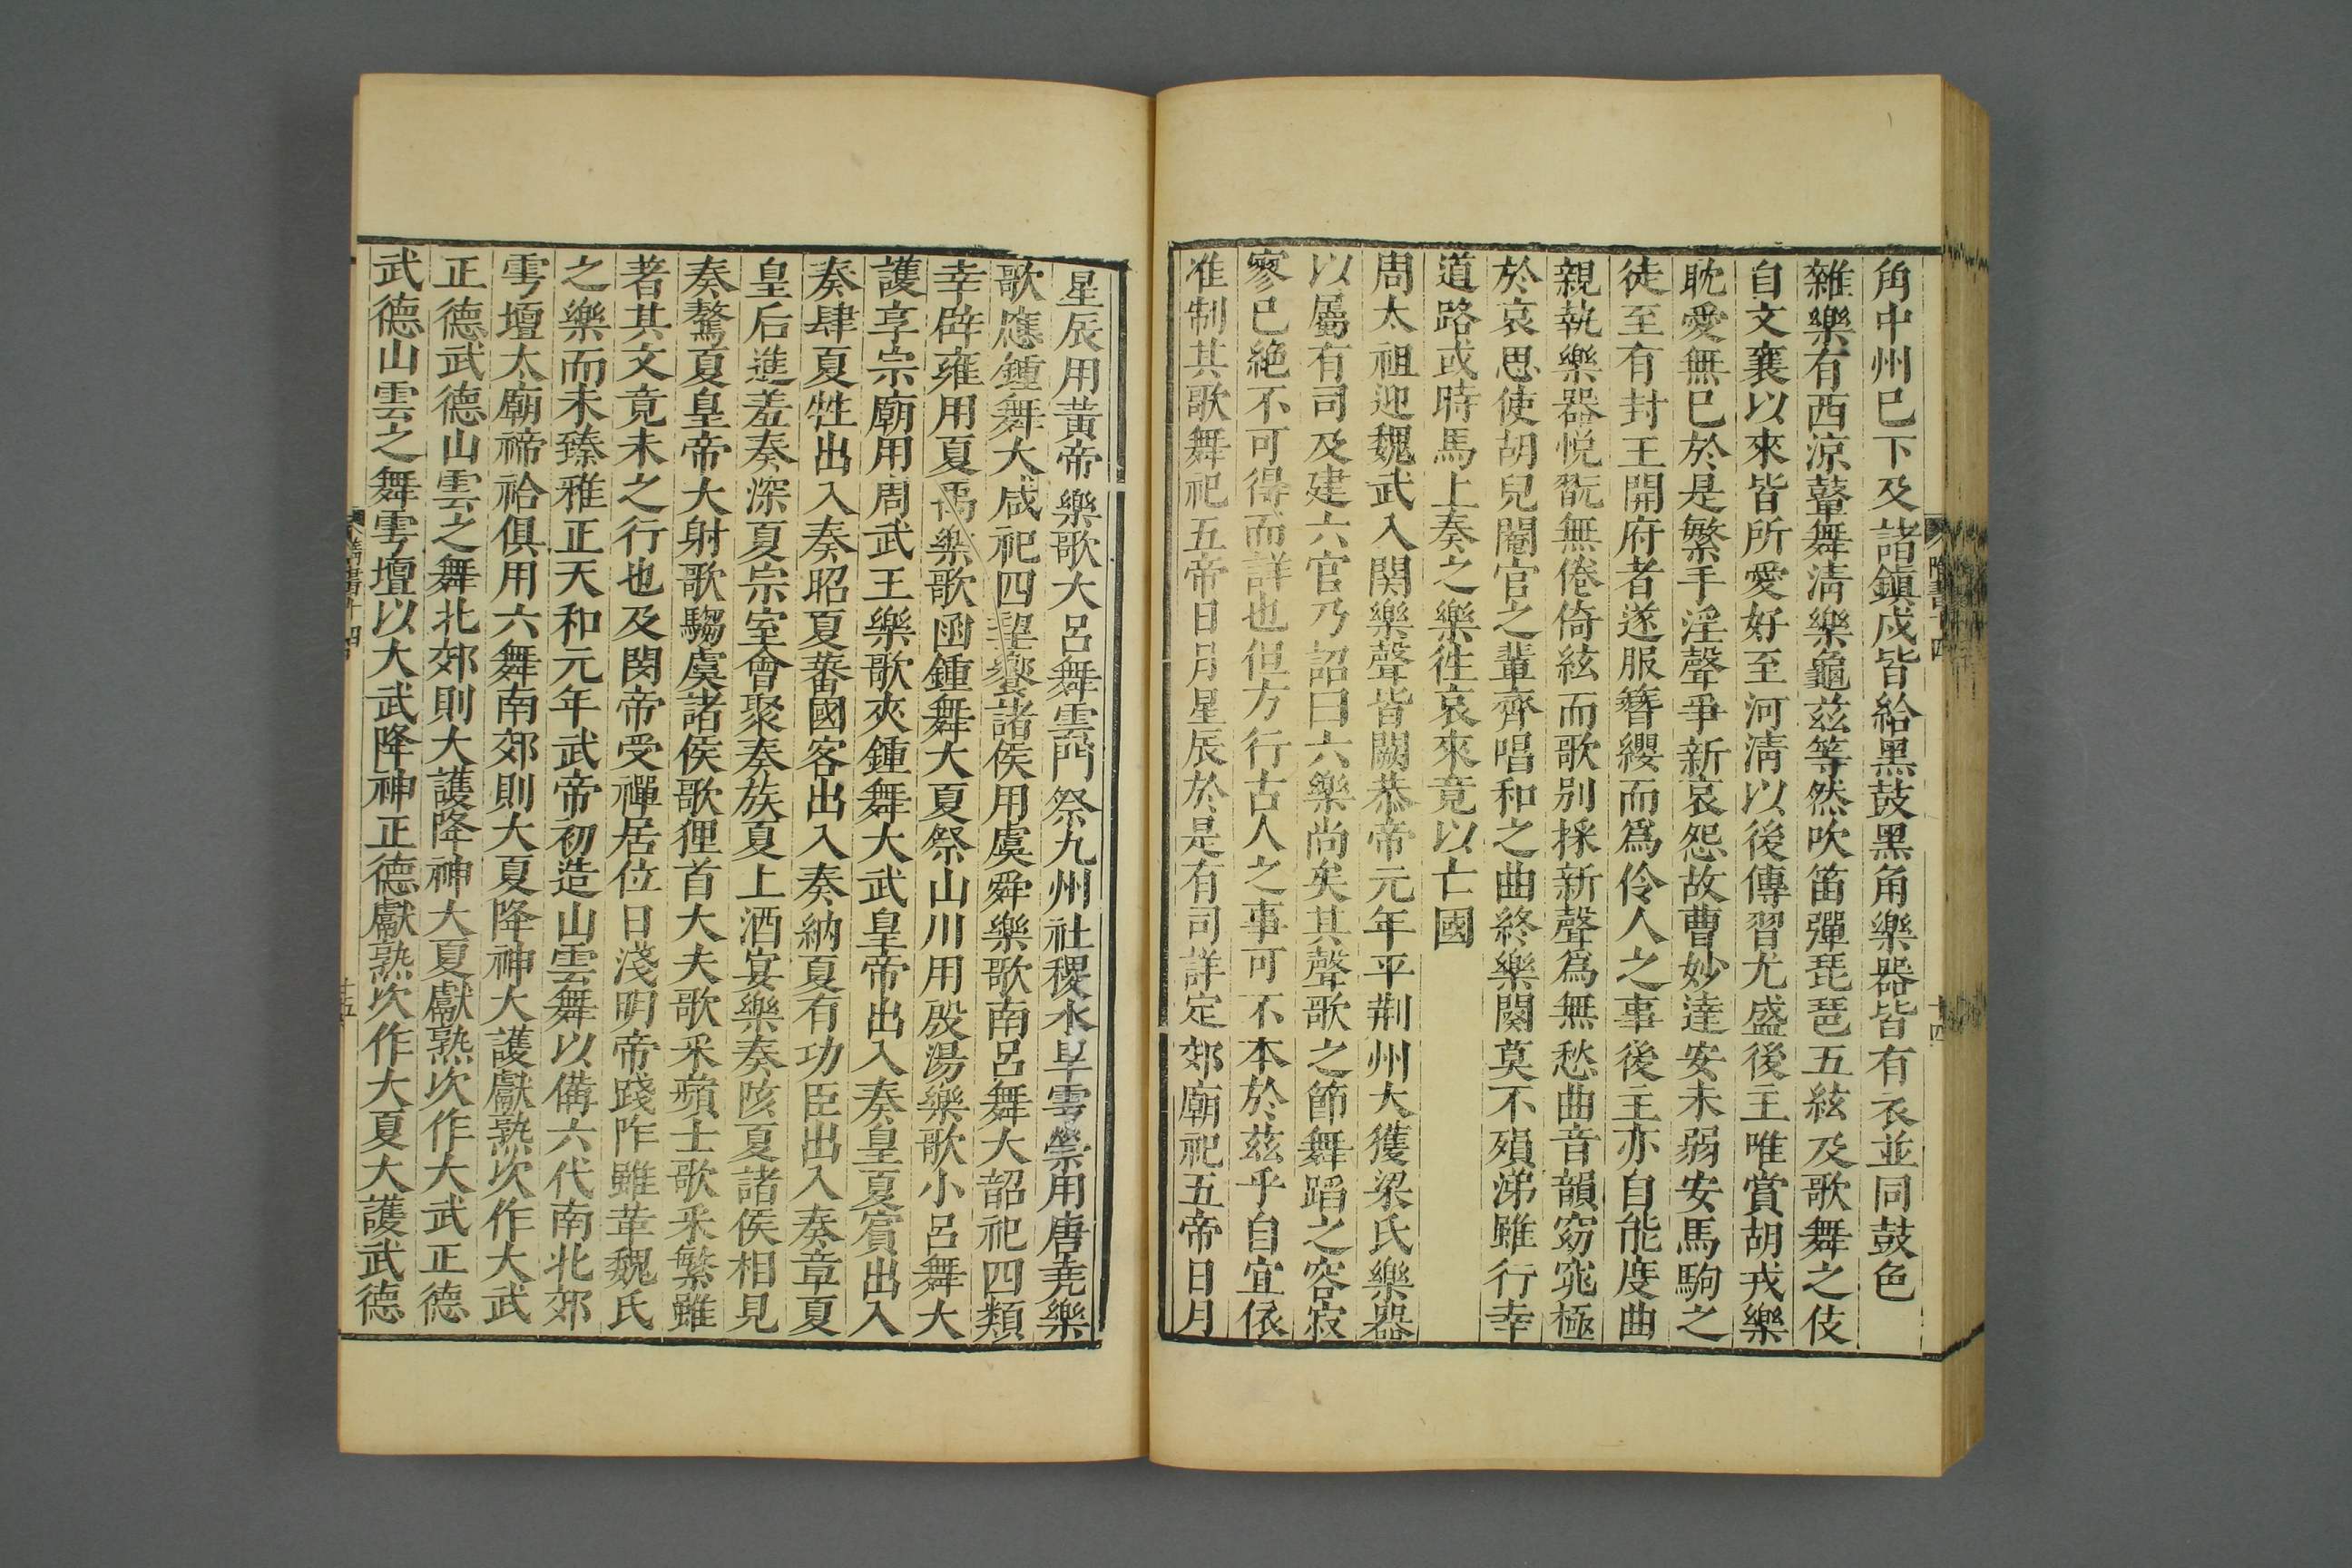 角中州已下及諸鎮戍皆給黑鼓黑角樂器皆有衣並同鼓色
雜樂有西涼鼙舞淸樂龜兹等然吹笛彈琵琶五絃及歌舞之伎
自文襄以來皆所愛好至河淸以後傳習尤盛後主唯賞胡戎樂
耽愛無已於是繁手淫聲爭新哀怨故曹妙達安未弱安馬駒之
徒至有封王開府者遂服簪纓而爲伶人之事後主亦自能度曲
親執樂器悅翫無倦倚絃而歌别採新聲爲無愁曲音韻窈窕極
於哀思使胡兒閹官之輩齊唱和之曲終樂闋莫不殞涕雖行幸
道路或時馬上奏之樂徃哀來竟以亡國
周太祖迎魏武入関樂聲皆闕恭帝元年平荆州大獲梁氏樂器
以屬有司及建六官乃詔曰六樂尚矣其聲歌之節舞蹈之容寂
寥已絶不可得而詳也但方行古人之事可不本於兹乎自宜依
准制其歌舞祀五帝日月星辰於是有司詳定郊廟祀五帝日月
星辰用黃帝樂歌大呂舞雲門祭九州社稷水旱雩禜用唐堯樂
歌應鍾舞大咸祀四望饗諸侯用虞舜樂歌南呂舞大韶祀四類
幸辟雍用夏禹樂歌函鍾舞大夏祭山川用殷湯樂歌小呂舞大
護享宗廟用周武王樂歌夾鍾舞大武皇帝出入奏皇夏賓出入
奏肆夏牲出入奏昭夏蕃國客出入奏納夏有功臣出入奏章夏
皇后進羞奏深夏宗室會聚奏族夏上酒宴樂奏陔夏諸侯相見
奏驁夏皇帝大射歌騶虞諸侯歌貍首大夫歌采蘋士歌采蘩雖
著其文竟未之行也及閔帝受禪居位日淺明帝踐阼雖革魏氏
之樂而未臻雅正天和元年武帝初造山雲舞以備六代南北郊
雩壇太廟禘祫俱用六舞南郊則大夏降神大護獻熟次作大武
正德武德山雲之舞北郊則大護降神大夏獻熟次作大武正德
武德山雲之舞雩壇以大武降神正德獻熟次作大夏大護武德
隋書十四
十五